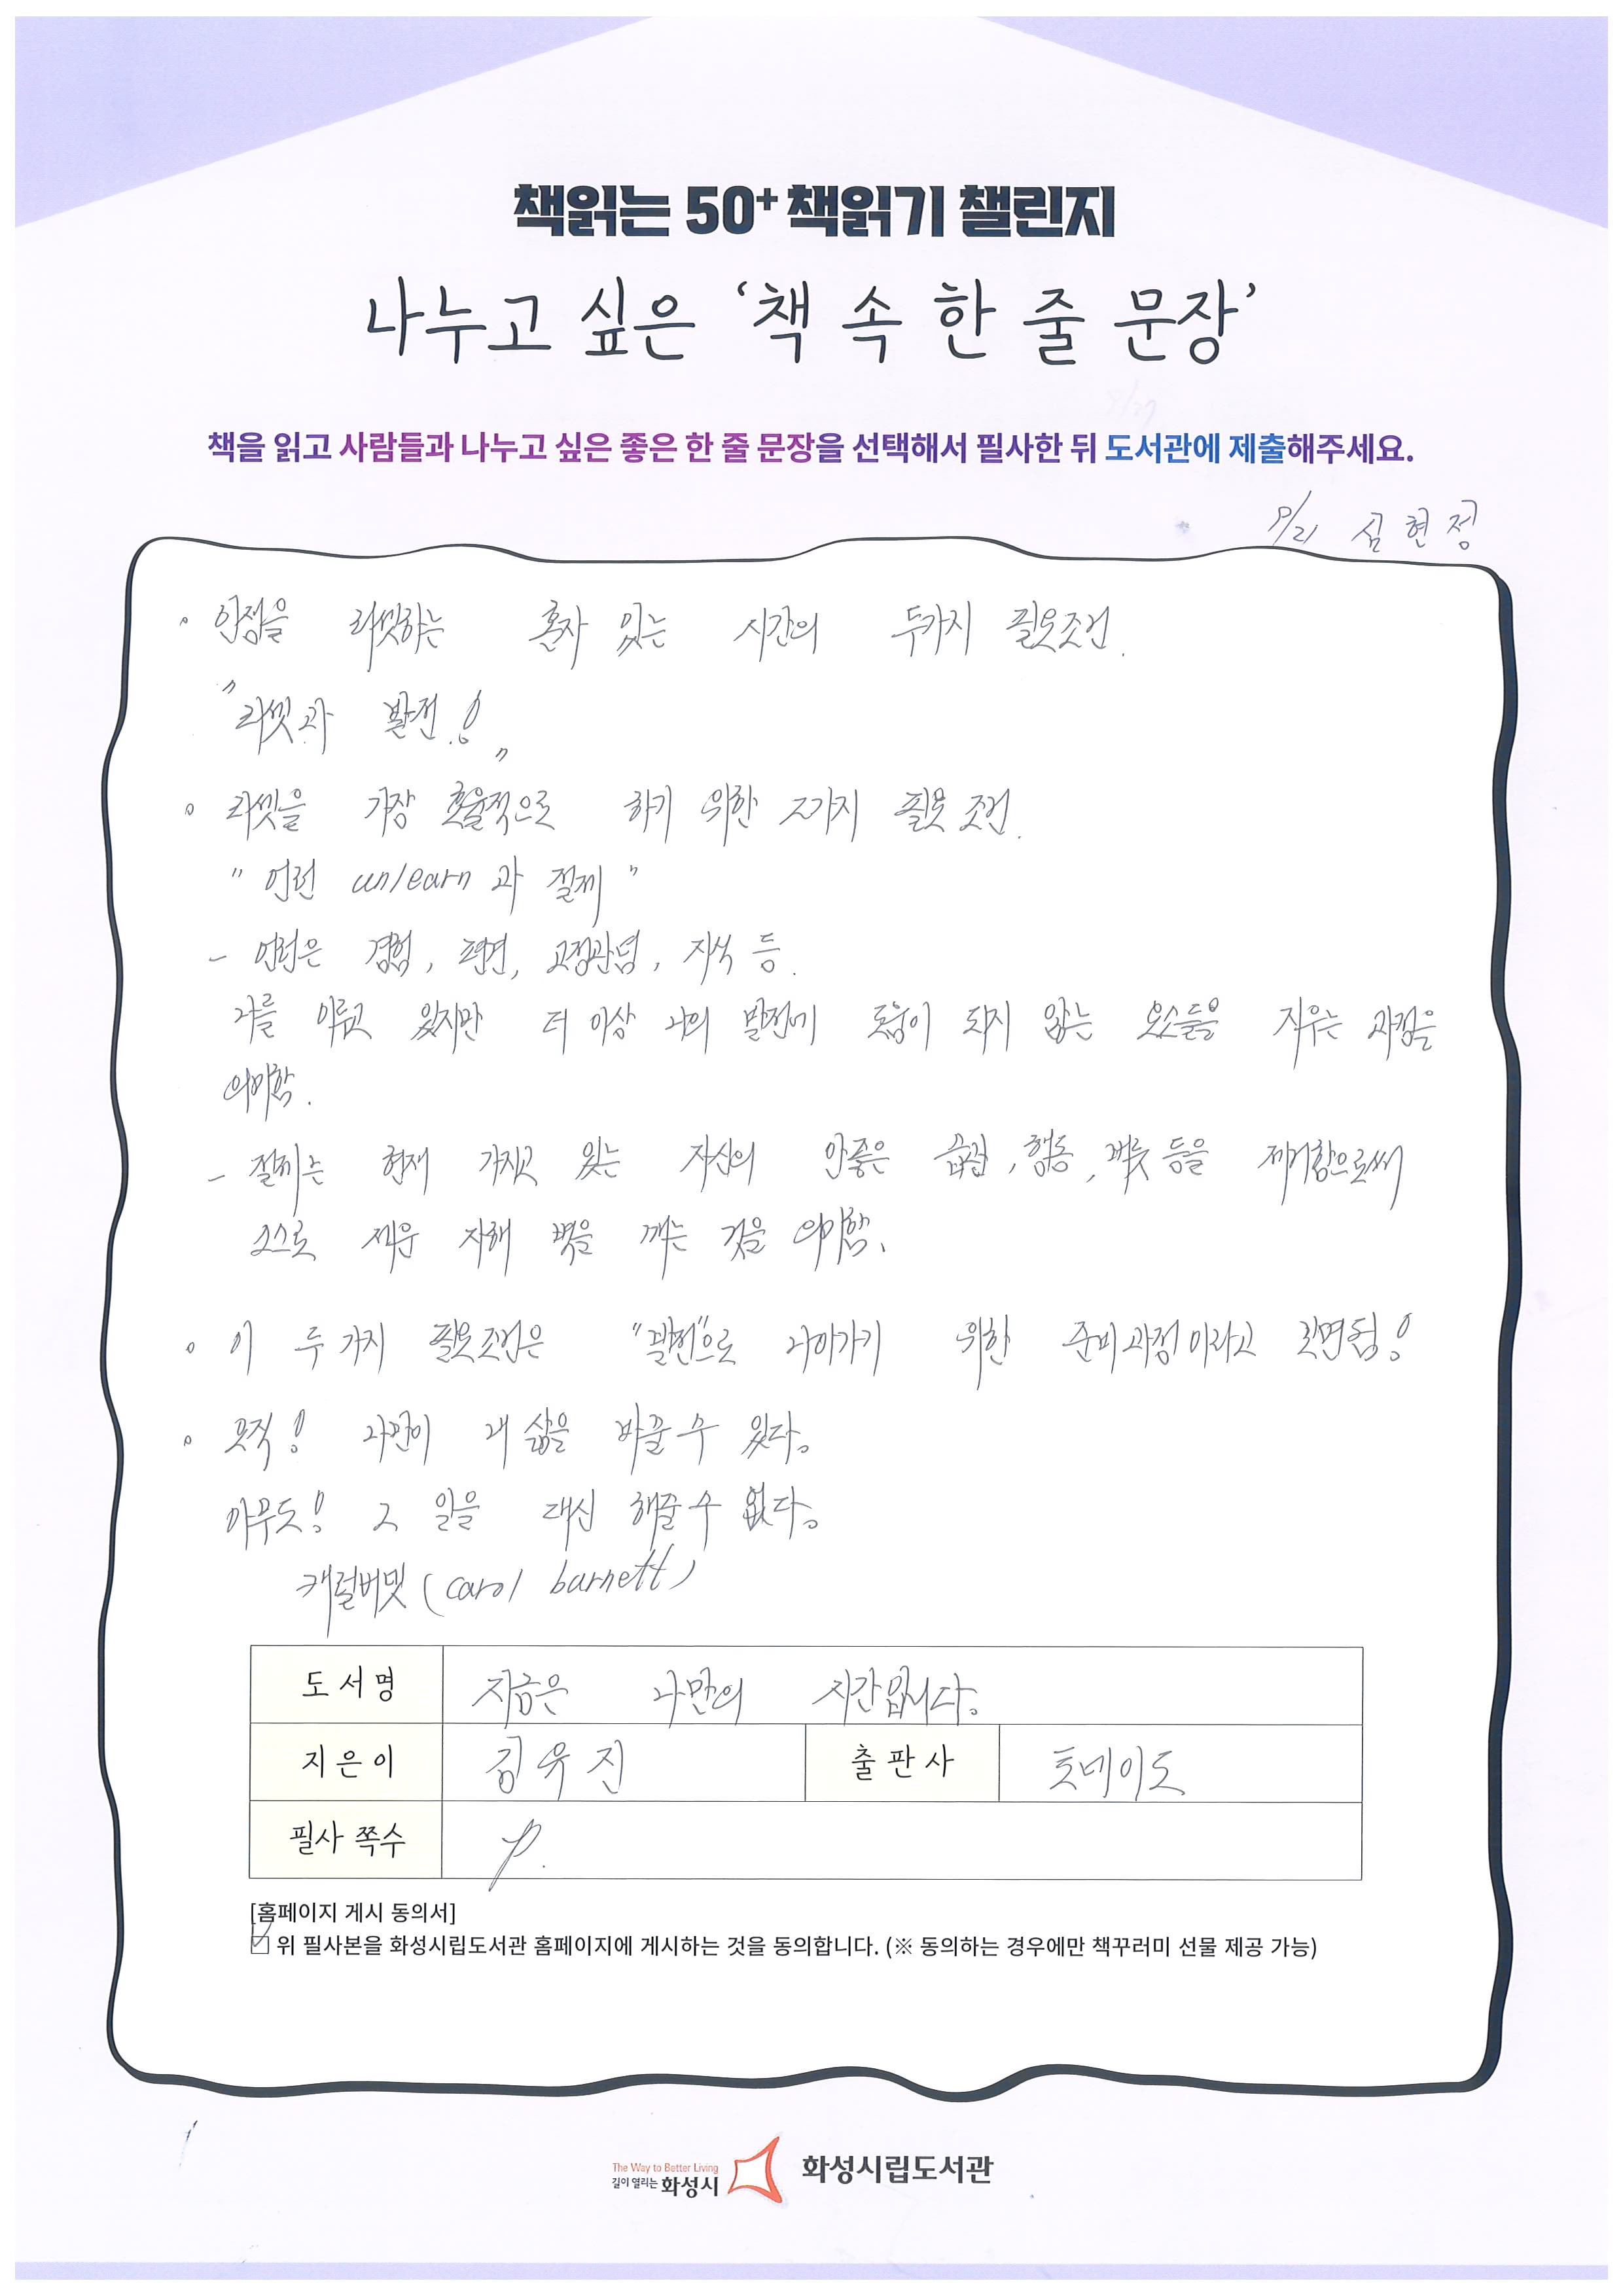 책읽는 50+ 책읽기 챌린지
나누고 싶은 ‘책 속 한 줄 문장’
책을 읽고 사람들과 나누고 싶은 좋은 한 줄 문장을 선택해서 필사한 뒤 도서관에 제출해주세요.
9/21 심현정
。 인생을 리셋하는 혼자 있는 시간의 두가지 필요조건.
"리셋과 발전!"
。 리셋을 가장 효율적으로 하기 위한 2가지 필요 조건.
" 언런 unlearn 과 절제 "
- 언런은 경험, 편견, 고정관념, 지식 등.
나를 이루고 있지만 더 이상 나의 발전에 도움이 되지 않는 요소들을 지우는 과정을
의미함.
- 절제는 현재 가지고 있는 자신의 안좋은 습관, 행동, 버릇 등을 제거함으로써
스스로 세운 자해 벽을 깨는 것을 의미함.
。 이 두 가지 필요조건은 "발전"으로 나아가기 위한 준비과정이라고 보면됨!
。 오직! 나만이 내 삶을 바꿀 수 있다。
아무도! 그 일을 대신 해줄 수 없다。
캐럴버넷 (carol burnett)
도서명 지금은 나만의 시간입니다。
지은이 김유진 출판사 토네이도
필사 쪽수 p.
[홈페이지 게시 동의서]
☑ 위 필사본을 화성시립도서관 홈페이지에 게시하는 것을 동의합니다. (※ 동의하는 경우에만 책꾸러미 선물 제공 가능)
The Way to Better Living
길이 열리는 화성시
화성시립도서관